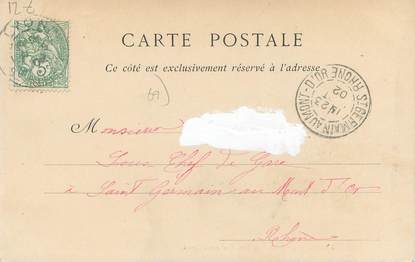 CARTE POSTALE
Ce côté est exclusivement réservé à l'adresse
69
Monsieur
Sous Chef de Gare
à Saint Germain au Mont d'Or
Rhône
ST GERMAIN-AU-MONT-D'OR RHONE
02